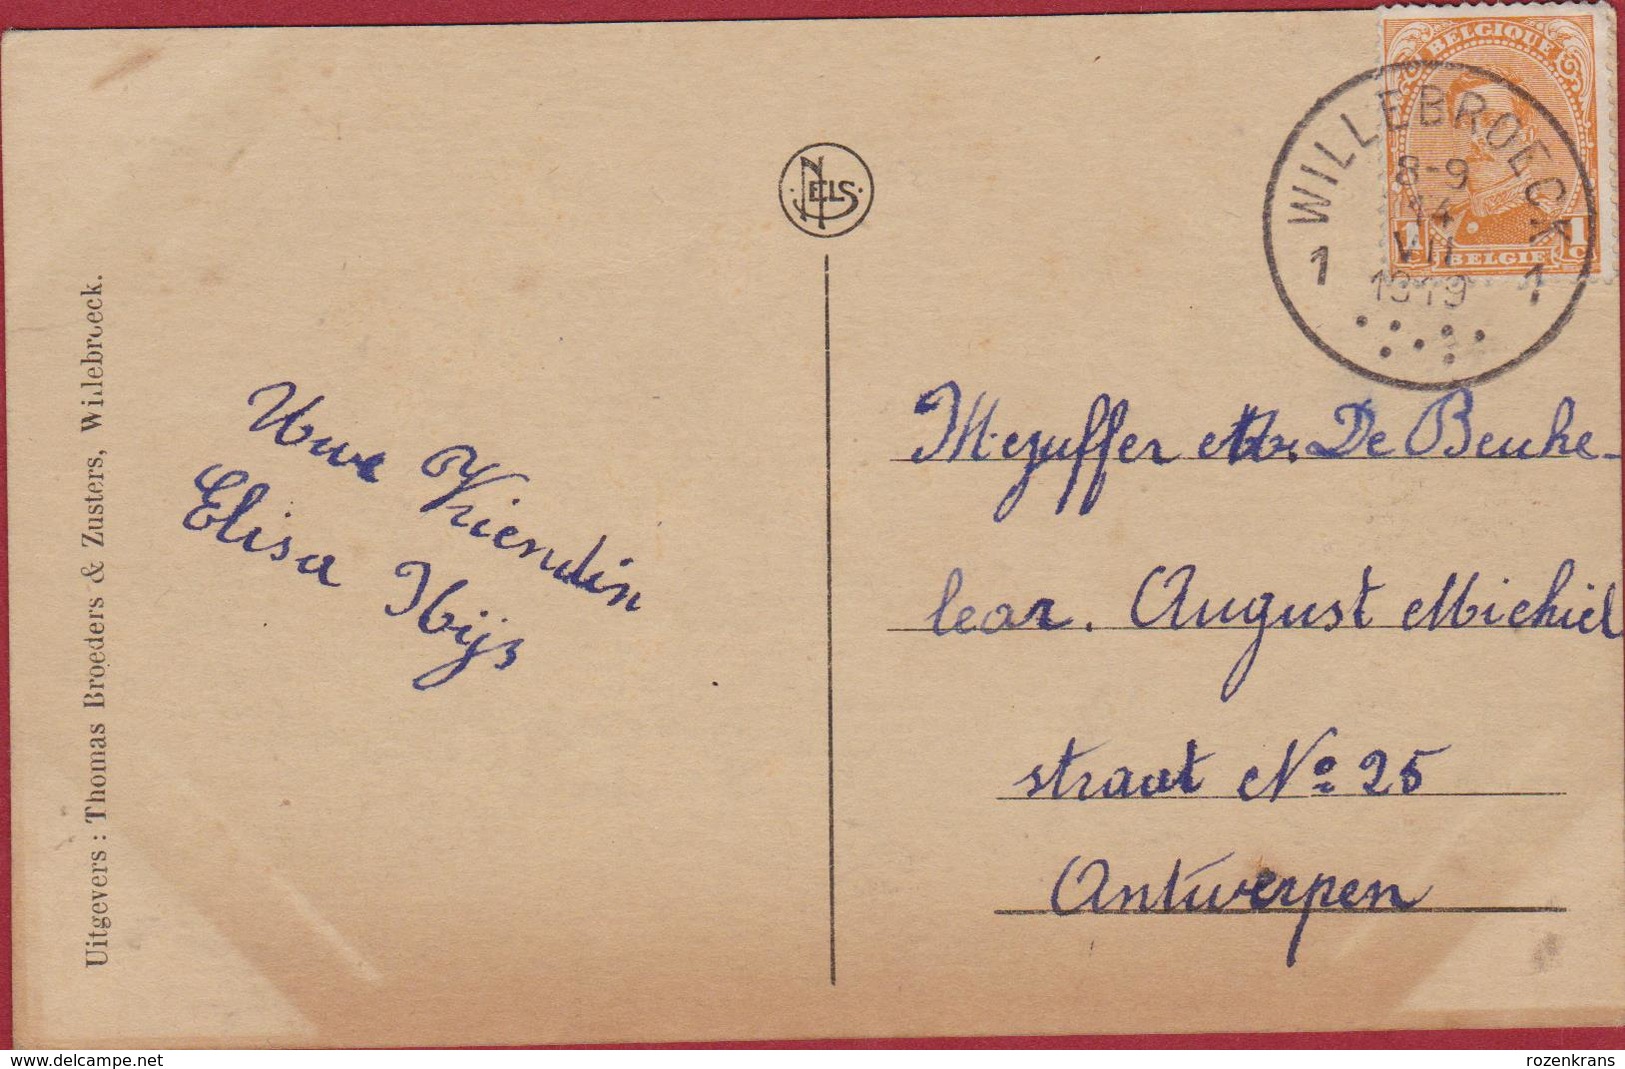 BELGIQUE
1C 1C
BELGIË
WILLEBROECK
8-9
14
VII
1919
1 1
NELS
Uitgevers : Thomas Broeders & Zusters, Willebroeck.
Uwe Vriendin
Elisa Thijs
Mejuffer M. De Beuke-
lear. August Michiel
straat No 25
Antwerpen
delcampe.net
rozenkrans